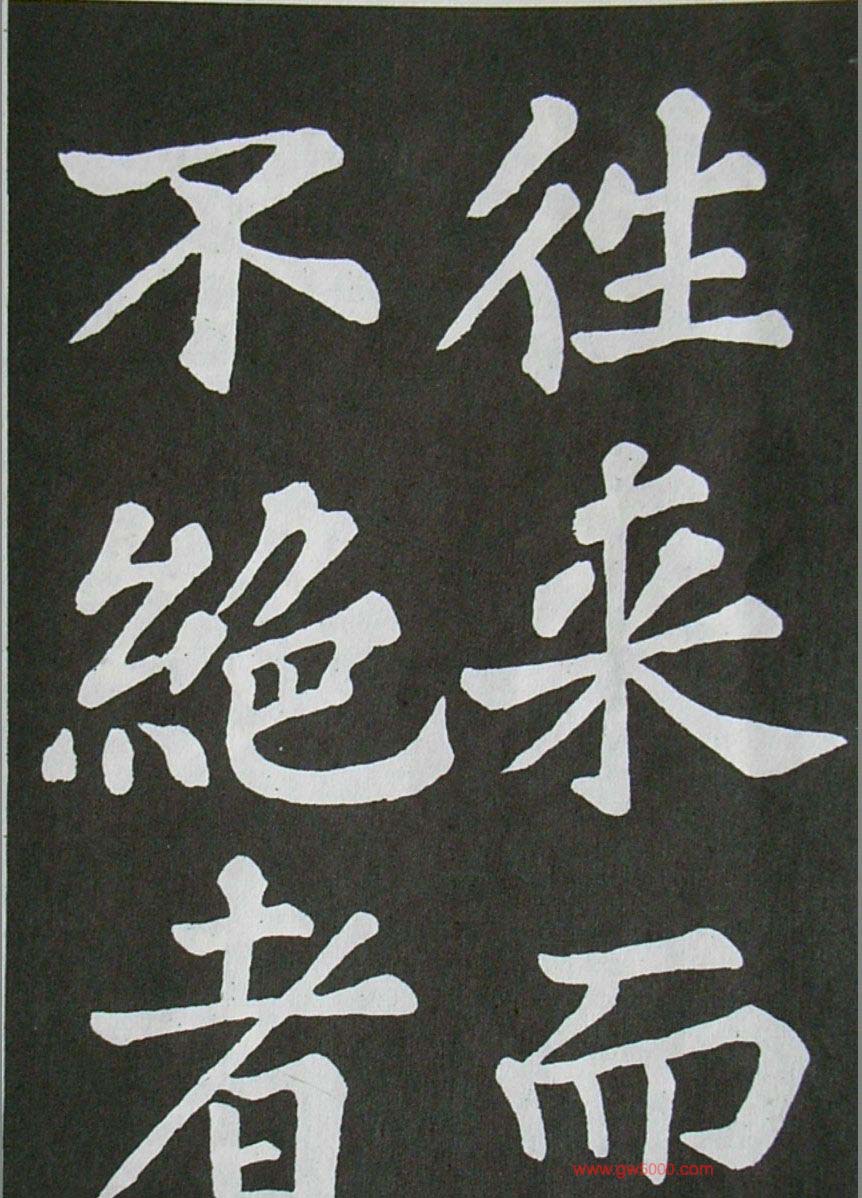 徃来而
不絶者
www.gw5000.com